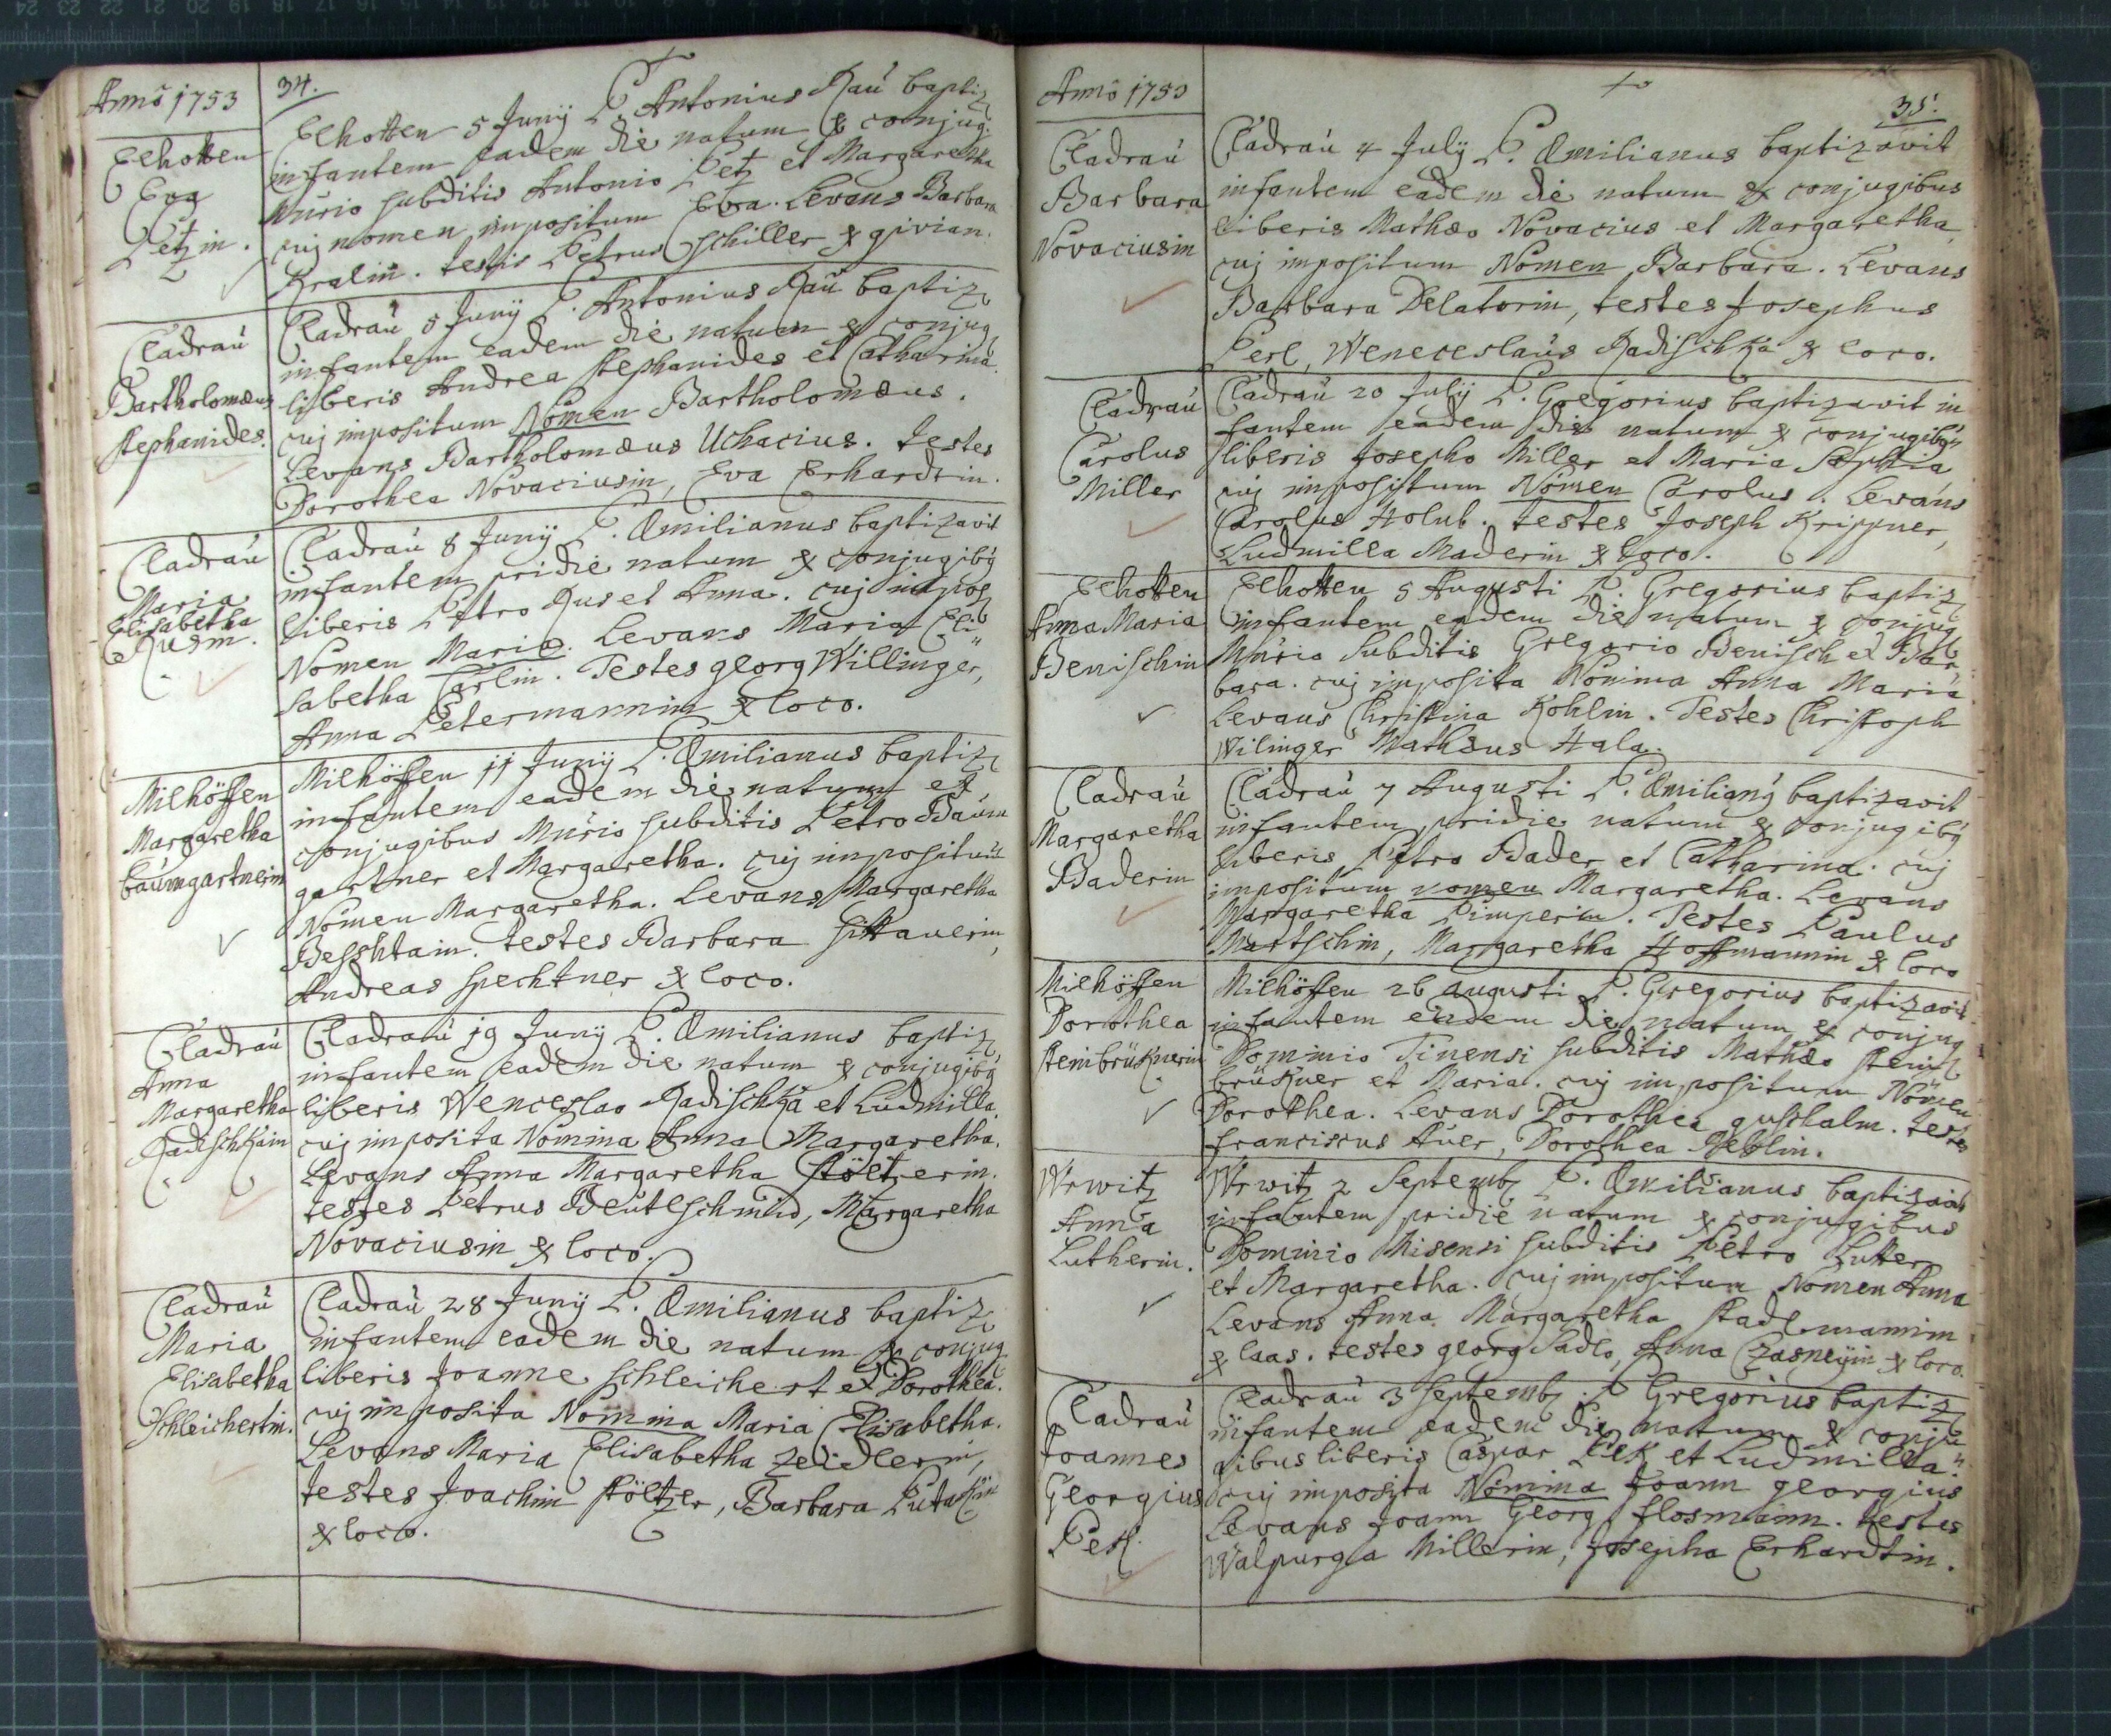 Anno 1753
34.
Elhotten
Eva
Petzin.
Elhotten 5 Juny P. Antonius Rau baptiz
infantem eadem die natum ex conjug:
Nurio subditis Antonio Petz et Margaretha
cuj nomen impositum Eva. Levans Barbara
Kralin. testis Petrus Schiller ex givian.
Cladrau
Bartholomæus
Stephanides.
Cladrau 5 Juny P. Antonius Rau baptiz
infantem eadem die natum ex conjug
liberis Andrea Stephanides et Catharina.
cuj impositum Nomen Bartholomæus.
Levans Bartholomæus Uchacius. testes
Dorothea Novaciusin, Eva Erhardtin.
Cladrau
Maria
Elisabetha
Rusin.
Cladrau 8 Juny P. Æmilianus baptizavit
infantem pridie natum ex conjugibȝ
liberis Petro Rus et Anna. cuj impos
Nomen Maria. Levans Maria Eli"
sabetha Carlin. Testes georg Willinger,
Anna Petermannin ex loco.
Milhöffen
Margaretha
baumgartnerin
Milhöffen 11 Juny P. Æmilianus baptiz
infantem eadem die natum ex
conjugibus Nurio subditis Petro Baum
gartner et Margaretha. cuj impositum
Nomen Margaretha. Levans Margaretha
testes Barbara
Andreas Spechtner ex loco.
Cladrau
Anna
Margaretha
Radischkain
Cladrau 19 Juny P. Æmilianus baptiz
infantem eadem die natum ex conjugibȝ
liberis Wenceslao Radischka et Ludmilla.
cuj imposita Nomina Anna Margaretha.
Levans Anna Margaretha Stöltzerin.
testes Petrus Beutlschmid, Margaretha
Novaciusin ex loco.
Cladrau
Maria
Elisabetha
Schleichertin.
Cladrau 28 Juny P. Æmilianus baptiz
infantem eadem die natum ex conjug
liberis Joanne Schleichert et Dorothea.
cuj imposita Nomina Maria Elisabetha.
Levans Maria Elisabetha Zeidlerin,
testes Joachim Stöltzer, Barbara
ex loco.
Anno 1753
35.
Cladrau
Barbara
Novaciusin
Cladrau 4 July P. Æmilianus baptizavit
infantem eadem die natum ex conjugibus
liberis Mathæo Novacius et Margaretha
cuj impositum Nomen Barbara. Levans
Barbara Delatorin, testes Josephus
Perl, Weneceslaus Radischka ex loco.
Cladrau
Carolus
Miller
Cladrau 20 July P. Gregorius baptizavit in
fantem eadem die natum ex conjugibȝ
liberis Josepho Miller et Maria Sophia
cuj impositum Nomen Carolus. Levans
Carolus Holub. testes Joseph Krippner,
Ludmilla Maderin ex loco.
Elhotten
Anna Maria
Benischin
Elhotten 5 Augusti P. Gregorius baptiz
infantem eadem die natum ex conjug
Nurio Subditis Gregorio Benisch et Bar
bara. cuj imposita Nomina Anna Maria
Levans Christina Kohlin. Testes Christoph
Wilinger Mathæus Hala.
Cladrau
Margaretha
Baderin
Cladrau 7 Augusti P. Æmilianȝ baptizavit
infantem pridie natum ex conjugibȝ
liberis Petro Bader et Catharina. cuj
impositum nomen Margaretha. Levans
Margaretha Pimperin. Testes Paulus
Martschin, Margaretha Hoffmannin ex loco
Milhöffen
Dorothea
Steinbrüknerin
Milhöffen 26 augusti P. Gregorius baptizavit
infantem eadem die natum ex conjug
Dominio Tinensi subditis Mathæo Stein
brükner et Maria. cuj impositum Nomen
Dorothea. Levans Dorothea testes
franciscus Auer, Dorothea
Wrwitz
Anna
Lutherin.
Wrwitz 2 Septemb P. Æmilianus baptizavit
infantem pridie natum ex conjugibus
Dominio Misensi subditis Petro Lutter
et Margaretha. cuj impositum Nomen Anna
Levans Anna Margaretha Stadlmannin
ex laas. testes georg Sadlo, Anna ex loco.
Cladrau
Joannes
Georgius
Pesl.
Cladrau 3 Septemb. P Gregorius baptiz
infantem eadem die natum ex conju
gibus liberis Caspar et Ludmilla.
cuj imposita Nomina Joann georgius
Levans Joann Georg flosmann. testes
Walpurga Millerin, Josepha Erhardtin.